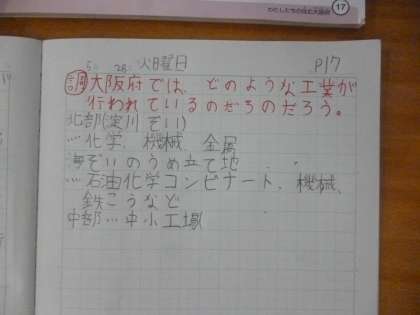 わたしたちの住む大阪府 17
5 28 火曜日 P17
調 大阪府では、どのような工業が
行われているのだろのだろう。
北部(淀川ぞい)
…化学、機械、金属
海ぞいのうめ立て地
…石油化学コンビナート、機械、
鉄こうなど
中部…中小工場